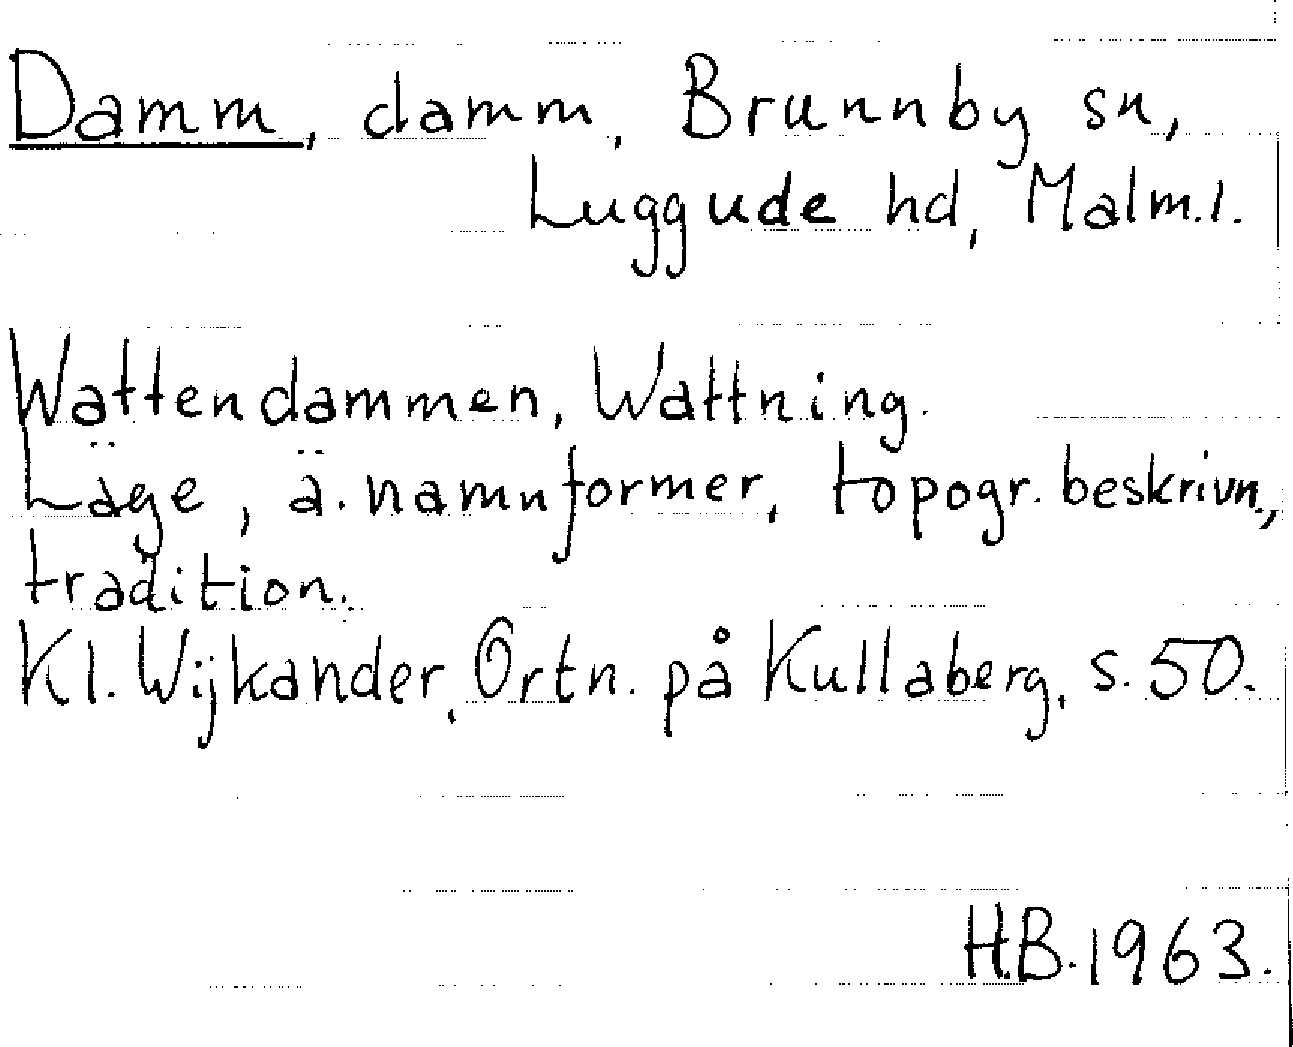 Damm, damm, Brunnby sn,
Luggude hd, Malm.l.
Wattendammen, Wattning.
Läge, ä. namnformer, topogr. beskrivn.,
tradition.
Kl. Wijkander, Ortn. på Kullaberg, s. 50.
H.B. 1963.